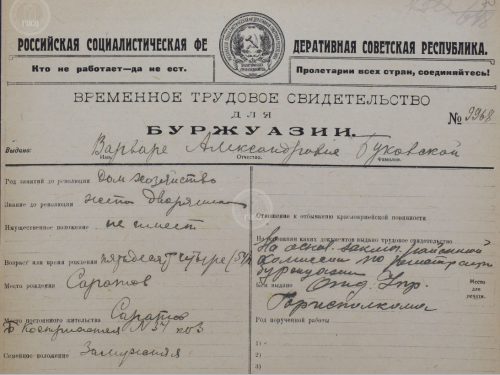 РОССИЙСКАЯ СОЦИАЛИСТИЧЕСКАЯ ФЕДЕРАТИВНАЯ СОВЕТСКАЯ РЕСПУБЛИКА.
Кто не работает—да не ест.
Пролетарии всех стран, соединяйтесь!
ВРЕМЕННОЕ ТРУДОВОЕ СВИДЕТЕЛЬСТВО
ДЛЯ
БУРЖУАЗИИ.
№ 9968
Выдано: Варваре Александровне Буковской
Имя. Отчество. Фамилия.
Род занятий до революции Домохозяйство
Звание до революции
Имущественное положение не имеет
Возраст или время рождения пятьдесят четыре (54)
Место рождения Саратов
Место постоянного жительства Саратов
Семейное положение Замужняя
Отношение к отбыванию красноармейской повинности
На основании каких документов выдано трудовое свидетельство
На основ. заключ. районной
комиссии по регистрации
буржуазии
Кем выдано Отд. Упр.
Горисполкома
Место для печати.
Род порученной работы
1)
2)
3)
4)